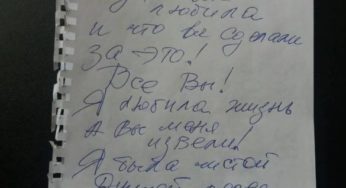 любила
и что вы сделали
за это!
Все Вы!
Я любила жизнь
А вы меня
извели!
Я была чистой